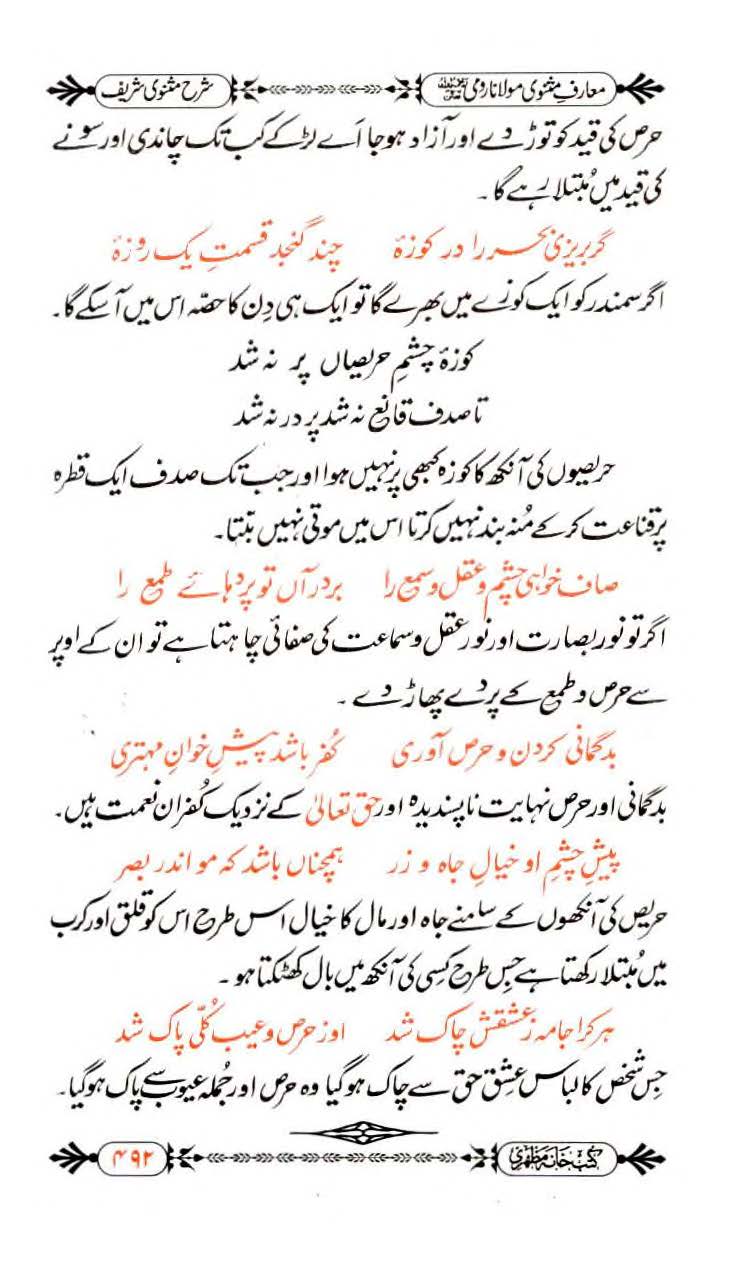 معارفِ مثنوی مولانا رومی ؒ شرح مثنوی شریف
حرص کی قید کو توڑ دے اور آزاد ہوجا اَے لڑکے کب تک چاندی اور سونے
کی قید میں مُبتلا رہے گا۔
گر بریزی بحر را در کوزۂ چند گنجد قسمتِ یک روزۂ
اگر سمندر کو ایک کوزے میں بھرے گا تو ایک ہی دِن کا حصّہ اس میں آسکے گا۔
کوزۂ چشمِ حریصاں پر نہ شد
تا صدف قانع نہ شد پر در نہ شد
حریصوں کی آنکھ کا کوزہ کبھی پر نہیں ہوا اور جب تک صدف ایک قطرہ
پر قناعت کرکے مُنہ بند نہیں کرتا اس میں موتی نہیں بنتا۔
صاف خواہی چشم و عقل و سمع را بر در آں تو پردہائے طمع را
اگر تو نورِ بصارت اور نورِ عقل و سماعت کی صفائی چاہتا ہے تو ان کے اوپر
سے حرص و طمع کے پردے پھاڑ دے ۔
بدگمانی کردن و حرص آوری کُفر باشد پیشِ خوانِ مہتری
بدگمانی اور حرص نہایت ناپسندیدہ اور حق تعالیٰ کے نزدیک کُفرانِ نعمت ہیں۔
پیشِ چشمِ او خیالِ جاہ و زر ہمچناں باشد کہ مو اندر بصر
حریص کی آنکھوں کے سامنے جاہ اور مال کا خیال اس طرح اس کو قلق اور کرب
میں مُبتلا رکھتا ہے جِس طرح کِسی کی آنکھ میں بال کھٹکتا ہو ۔
ہر کرا جامہ ز عشقش چاک شد او ز حرص و عیب کُلّی پاک شد
جِس شخص کا لباس عِشق حق سے چاک ہوگیا وہ حرص اور جُملہ عیوب سے پاک ہوگیا۔
کتب خانہ مظہری ۴۹۲